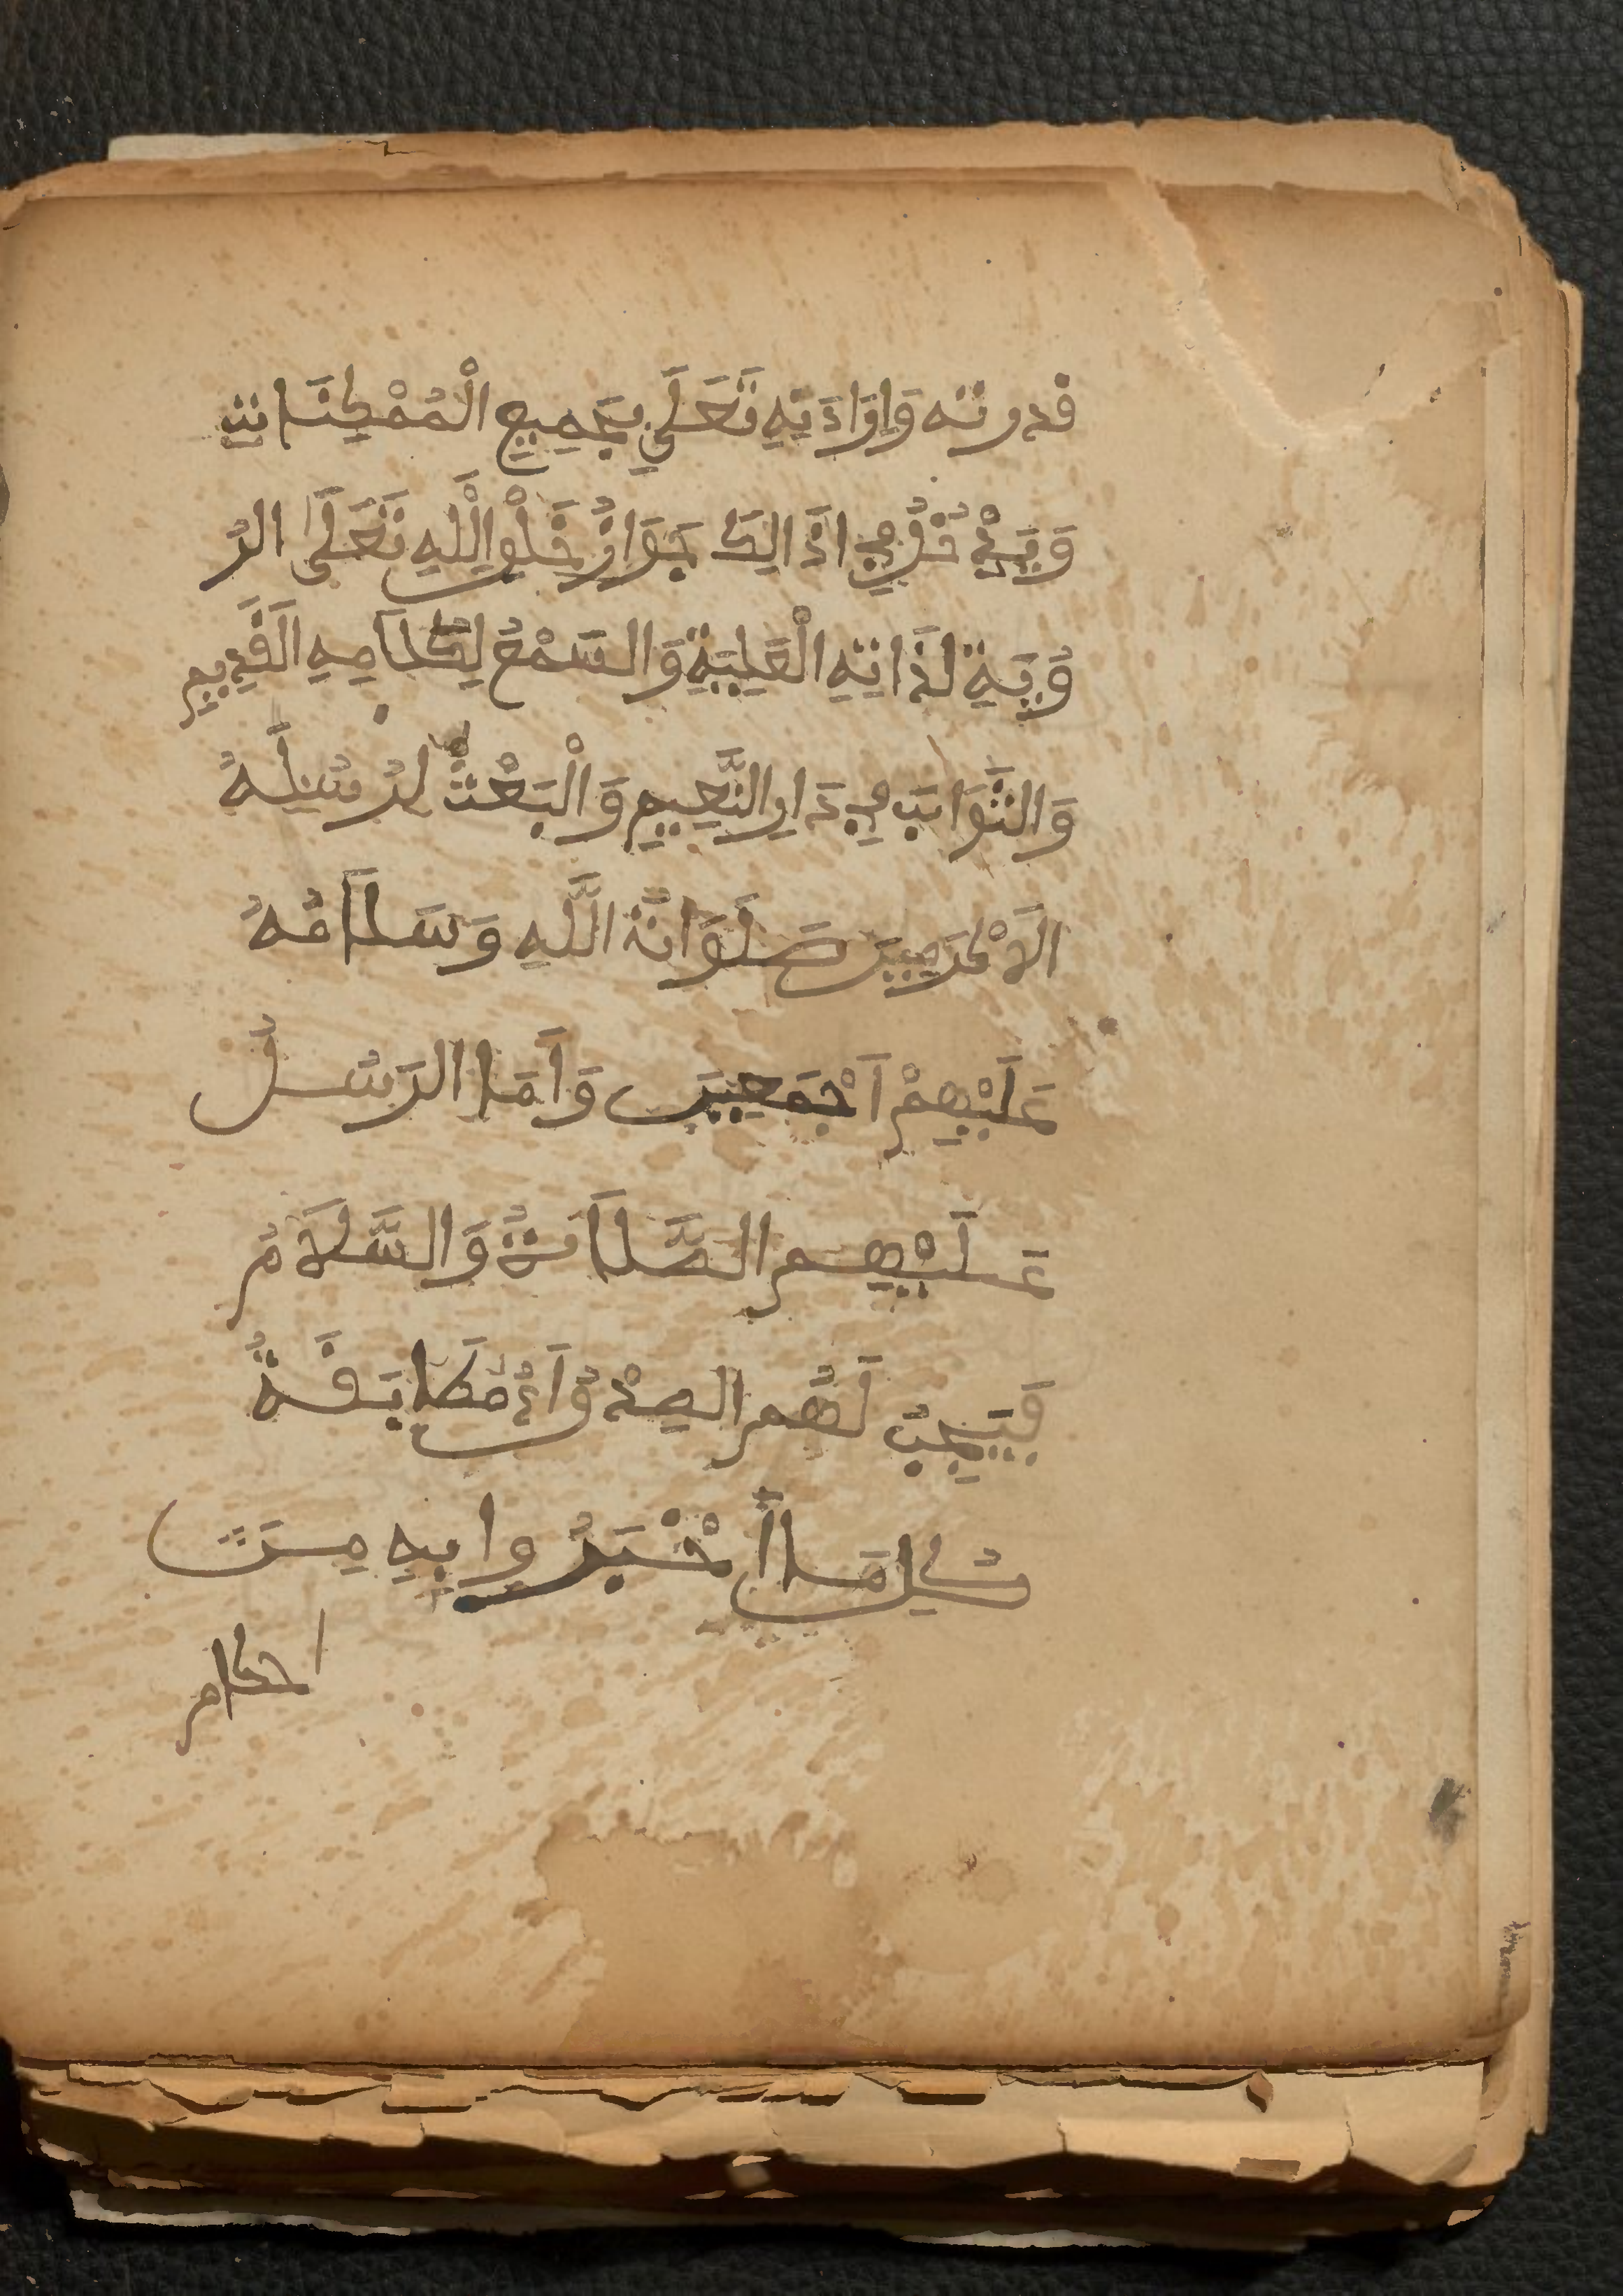 قدرته وَإِرَادَتِهِ تَعَلَى بِجَمِيعِ الْمُمْكِنَاتِ
وَيَدْخُلُ فِي اذَالِكَ جَوَازُ خَلْقِ اللَّهِ تَعَلَى الرُ
وْيَةِ لَذَاتِهِ الْعَلِيَّةِ وَالسَمْعُ لِكَلَامِهِ الَقَدِيمِ
وَالثَّوَابَ فِي دَارِ النَّعِيمِ وَالْبَعْثُ لِرُسُلِهُ
الَاكْرَمِينَ صَلَوَاتُ اللَّهِ وَسَلَامُهُ
عَلَيْهِمْ اَجْمَعِينَ وَاَمَا الرَسُلُ
عَلَيْهِم الصَّلَاتُ وَالسَّلَامُ
فَيَجِبُ لَهُم الصِدْقُ اَيْ مُطَابَقَةُ
كُلِ مَا أَخْبَرُوا بِهِ مِنَ
احكام